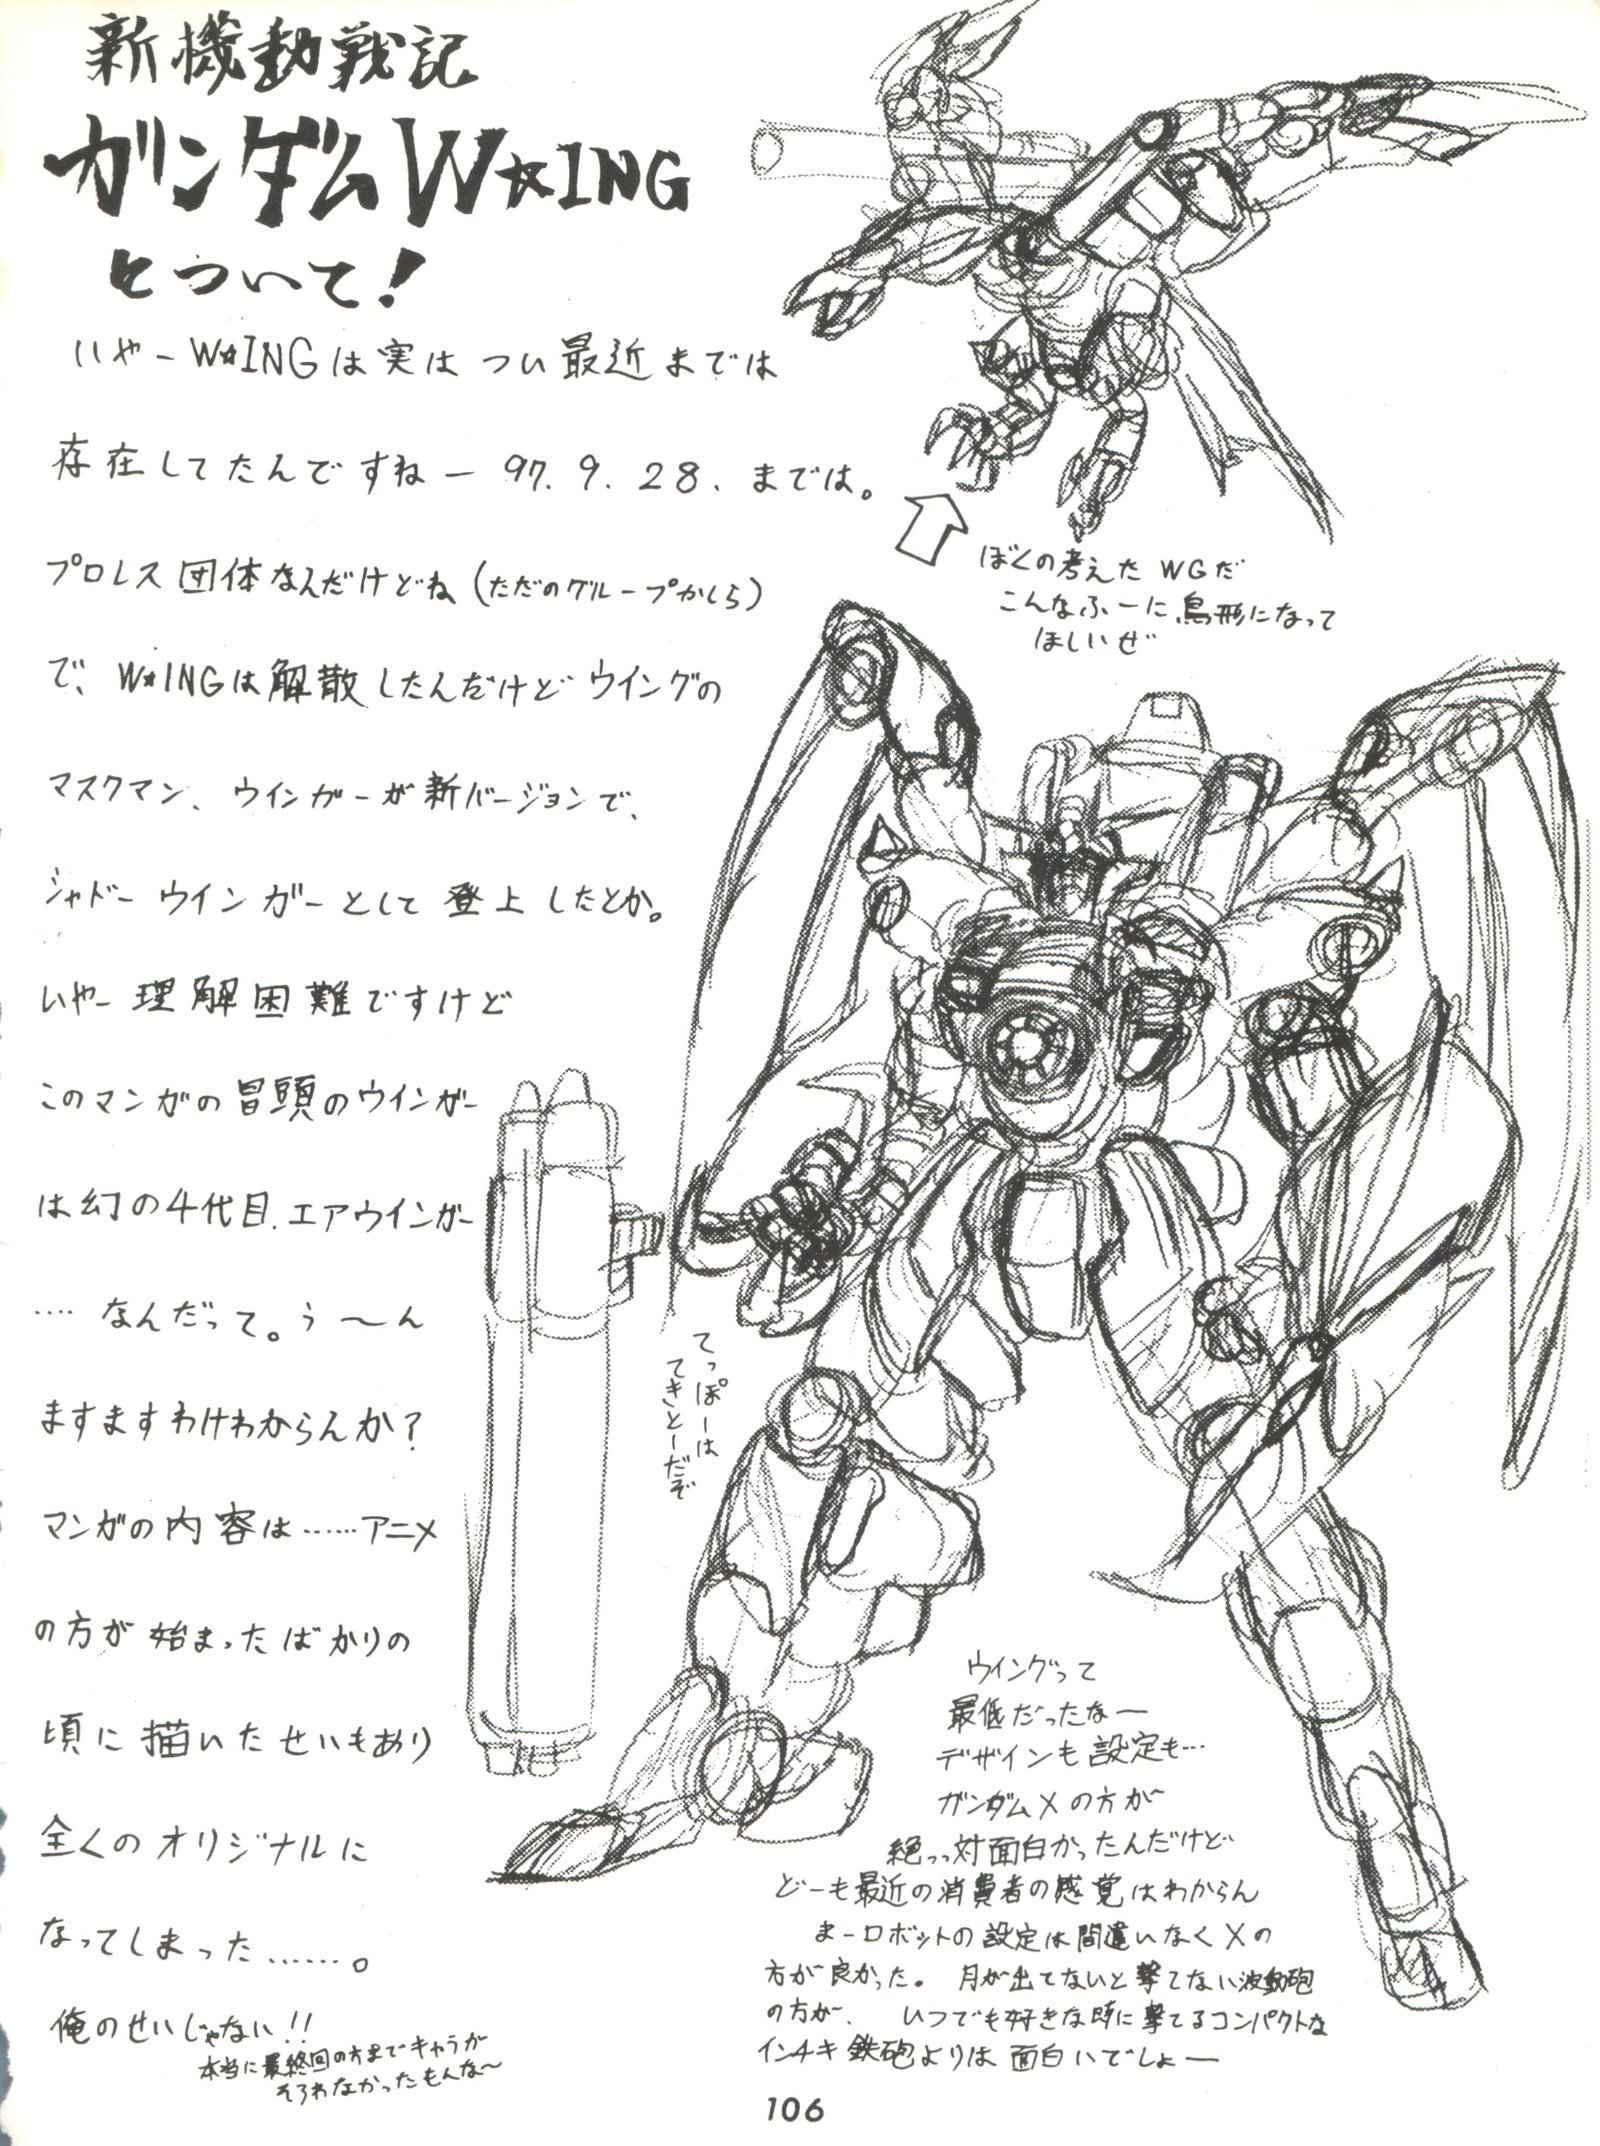 新機動戦記
ガンダムW☆ING
について!
いやーW☆INGは実はつい最近までは
存在してたんですねー97.9.28.までは。
プロレス団体なんだけどね(ただのグループかしら)
で、W☆INGは解散したんだけどウイングの
マスクマン、ウインガーが新バージョンで、
シャドーウインガーとして登上したとか。
いやー理解困難ですけど
このマンガの冒頭のウインガー
は幻の4代目、エアウインガー
‥‥なんだって。う〜ん
ますますわけわからんか?
マンガの内容は……アニメ
の方が始まったばかりの
頃に描いたせいもあり
全くのオリジナルに
なってしまった……。
俺のせいじゃない!!
本当に最終回の方までキャラが
そろわなかったもんな〜
ぼくの考えたWGだ
こんなふーに、鳥形になって
ほしいぜ
てっぽーは
てきとーだぞ
ウイングって
最低だったなー
デザインも設定も…
ガンダムXの方が
絶っっ対面白かったんだけど
どーも最近の消費者の感覚はわからん
まーロボットの設定は間違いなくXの
方が良かった。月が出てないと撃てない波動砲
の方が、いつでも好きな時に撃てるコンパクトな
インチキ鉄砲よりは面白いでしょー
106